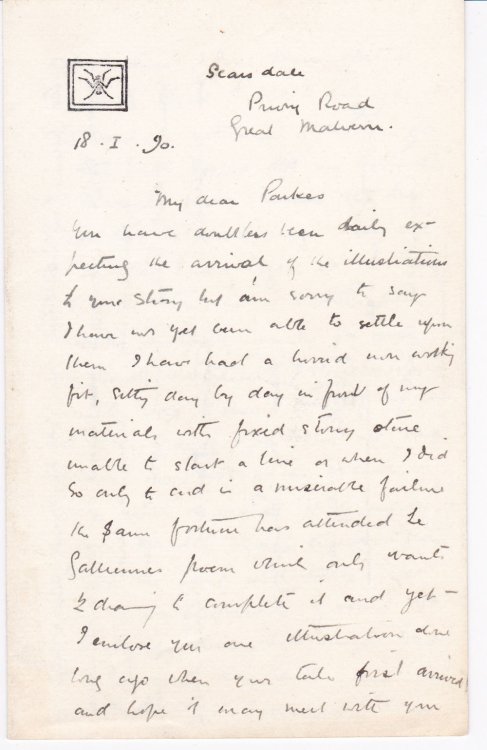 Scarsdale
Priory Road
Great Malvern.
18 . I . 90.
My dear Parkes
You have doubtless been daily ex-
pecting the arrival of the illustrations
to your story but am sorry to say
I have not yet been able to settle upon
them I have had a horrid non working
fit, sitting day by day in front of my
materials with fixed stony stare
unable to start a line or when I did
so only to end in a miserable failure
the same fortune has attended Le
Galliennes poem which only wants
2 drawing to complete it and yet —
I enclose you one illustration done
long ago when your tale first arrived
and hope it may meet with your